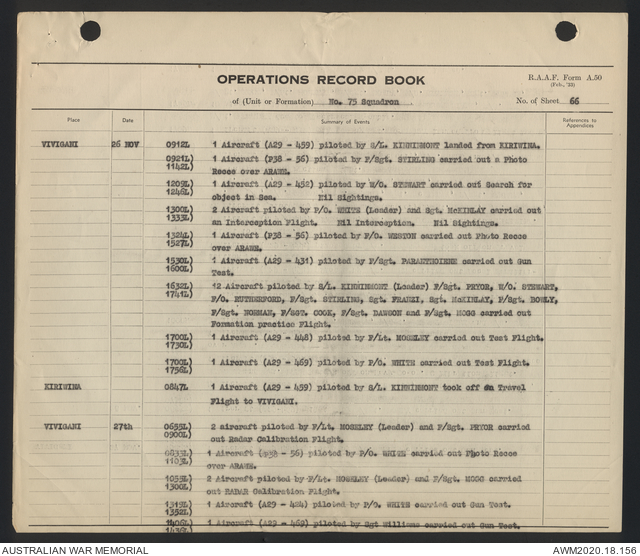 OPERATIONS RECORD BOOK
R.A.A.F. Form A.50
(Feb., '23)
of (Unit or Formation) No. 75 Squadron
No. of Sheet 66
Place Date Summary of Events References to Appendices
VIVIGANI 26 NOV 0912L 1 Aircraft (A29 - 459) piloted by S/L. KINNINMONT landed from KIRIWINA.
0921L) 1 Aircraft (P38 - 56) piloted by F/Sgt. STIRLING carried out a Photo
1142L) Recce over ARAWE.
1209L) 1 Aircraft (A29 - 452) piloted by W/O. STEWART carried out Search for
1246L) object in Sea. Nil Sightings.
1300L) 2 Aircraft piloted by P/O. WHITE (Leader) and Sgt. McKINLAY carried out
1333L) an Interception Flight. Nil Interception. Nil Sightings.
1324L) 1 Aircraft (P38 - 56) piloted by F/O. WESTON carried out Photo Recce
1527L) over ARAWE.
1530L) 1 Aircraft (A29 - 431) piloted by F/Sgt. PARAUTHOIENE carried out Gun
1600L) Test.
1632L) 12 Aircraft piloted by S/L. KINNINMONT (Leader) F/Sgt. PRYOR, W/O. STEWART,
1741L) F/O. RUTHERFORD, F/Sgt. STIRLING, Sgt. FRANKI, Sgt. McKINLAY, F/Sgt. BOWLY,
F/Sgt. NORMAN, F/SGT. COOK, F/Sgt. DAWSON and F/Sgt. MOGG carried out
Formation practice Flight.
1700L) 1 Aircraft (A29 - 448) piloted by F/Lt. MOSELEY carried out Test Flight.
1730L)
1700L) 1 Aircraft (A29 - 469) piloted by P/O. WHITE carried out Test Flight.
1756L)
KIRIWINA 0847L 1 Aircraft (A29 - 459) piloted by S/L. KINNINMONT took off on Travel
Flight to VIVIGANI.
VIVIGANI 27th 0655L) 2 aircraft piloted by F/Lt. MOSELEY (Leader) and F/Sgt. PRYOR carried
0900L) out Radar Calibration Flight.
0833L) 1 Aircraft (P38 - 56) piloted by P/O. WHITE carried out Photo Recce
1103L) over ARAWE.
1055L) 2 Aircraft piloted by F/Lt. MOSELEY (Leader) and F/Sgt. MOGG carried
1300L) out RADAR Calibration Flight.
1319L) 1 Aircraft (A29 - 424) piloted by P/O. WHITE carried out Gun Test.
1352L)
1406L) 1 Aircraft (A29 - 469) piloted by Sgt Williams carried out Gun Test.
1436L)
AUSTRALIAN WAR MEMORIAL
AWM2020.18.156